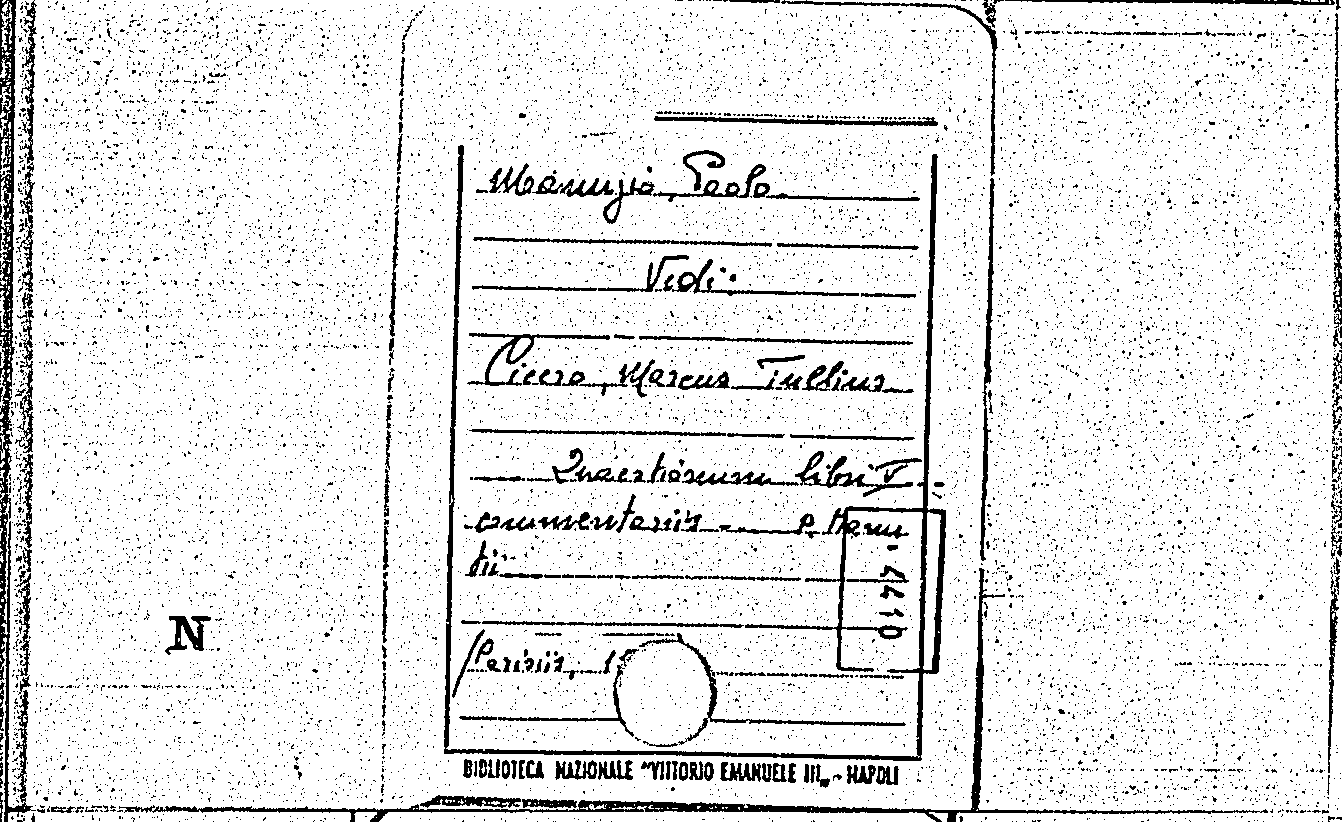 Manuzio, Paolo
Vedi:
Cicero, Marcus Tullius
Quaestionum libri V -
commentariis - P. Manu
tii
4410
Parisiis, 15
N
BIBLIOTECA NAZIONALE "VITTORIO EMANUELE III„ - NAPOLI